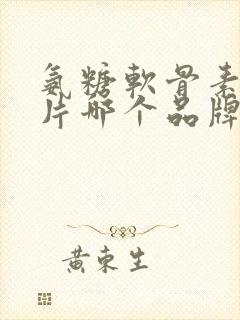 氨糖軟骨素
片哪个品牌
黄東生